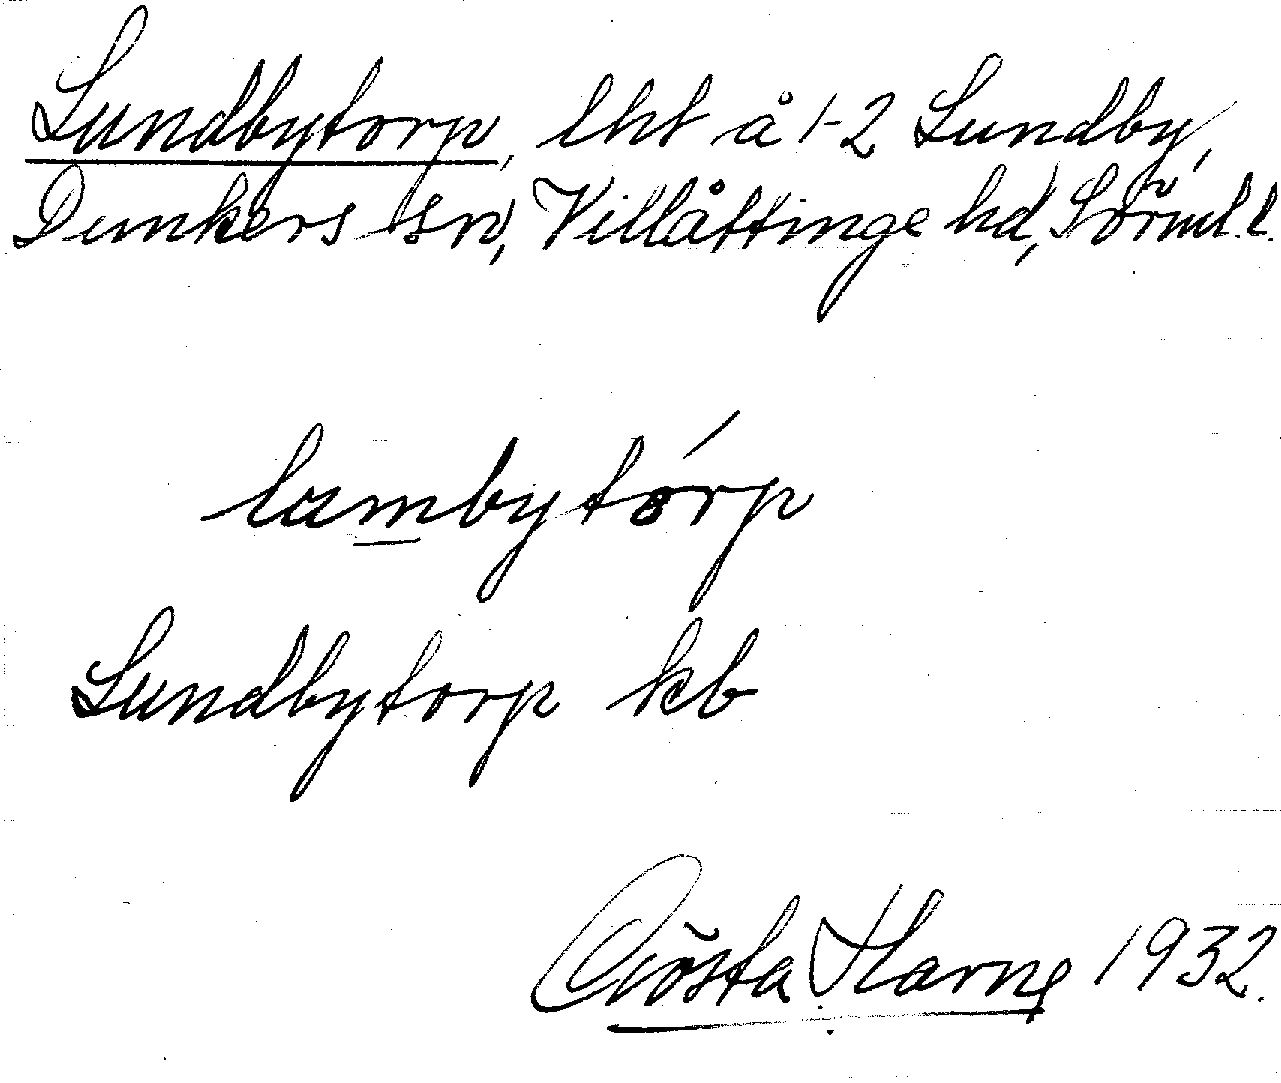 Lundbytorp, lht å 1-2 Lundby,
Dunkers sn, Villåttinge hd, Sörml. l.
lumbytórp
Lundbytorp kb
Gösta Harne 1932.